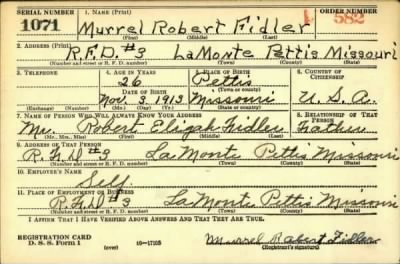 SERIAL NUMBER 1. NAME (Print) ORDER NUMBER
1071 Murrel Robert Fidler 582
(First) (Middle) (Last)
2. ADDRESS (Print)
R.F.D. #3 LaMonte Pettis Missouri
(Number and street or R. F. D. number) (Town) (County) (State)
3. TELEPHONE 4. AGE IN YEARS 5. PLACE OF BIRTH 6. COUNTRY OF CITIZENSHIP
26 Pettis
DATE OF BIRTH (Town or county)
Nov. 3, 1913 Missouri U.S.A.
(Exchange) (Number) (Mo.) (Day) (Yr.) (State or country)
7. NAME OF PERSON WHO WILL ALWAYS KNOW YOUR ADDRESS 8. RELATIONSHIP OF THAT PERSON
Mr. Robert Elijah Fidler Father
(Mr., Mrs., Miss) (First) (Middle) (Last)
9. ADDRESS OF THAT PERSON
R.F.D #3 LaMonte Pettis Missouri
(Number and street or R. F. D. number) (Town) (County) (State)
10. EMPLOYER'S NAME
Self
11. PLACE OF EMPLOYMENT OR BUSINESS
R.F.D #3 LaMonte Pettis Missouri
(Number and street or R. F. D. number) (Town) (County) (State)
I AFFIRM THAT I HAVE VERIFIED ABOVE ANSWERS AND THAT THEY ARE TRUE.
REGISTRATION CARD
D. S. S. Form 1 (over) 16-17105 Murrel Robert Fidler
(Registrant's signature)